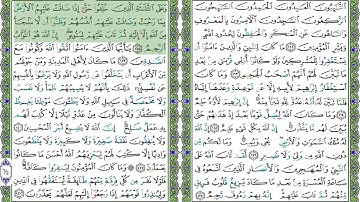 التَّٰٓئِبُونَ الْعَٰبِدُونَ الْحَٰمِدُونَ السَّٰٓئِحُونَ
الرَّٰكِعُونَ السَّٰجِدُونَ الْءَامِرُونَ بِالْمَعْرُوفِ
وَالنَّاهُونَ عَنِ الْمُنكَرِ وَالْحَٰفِظُونَ لِحُدُودِ اللَّهِ
وَبَشِّرِ الْمُؤْمِنِينَ ١١٢ مَا كَانَ لِلنَّبِيِّ وَالَّذِينَ ءَامَنُوٓا أَن
يَسْتَغْفِرُوا لِلْمُشْرِكِينَ وَلَوْ كَانُوٓا أُولِي قُرْبَىٰ مِن بَعْدِ
مَا تَبَيَّنَ لَهُمْ أَنَّهُمْ أَصْحَٰبُ الْجَحِيمِ ١١٣ وَمَا كَانَ
اسْتِغْفَارُ إِبْرَٰهِيمَ لِأَبِيهِ إِلَّا عَن مَّوْعِدَةٍ وَعَدَهَآ إِيَّاهُ
فَلَمَّا تَبَيَّنَ لَهُۥٓ أَنَّهُۥ عَدُوٌّ لِّلَّهِ تَبَرَّأَ مِنْهُ إِنَّ إِبْرَٰهِيمَ
لَأَوَّٰهٌ حَلِيمٌ ١١٤ وَمَا كَانَ اللَّهُ لِيُضِلَّ قَوْمًۢا بَعْدَ إِذْ هَدَىٰهُمْ
حَتَّىٰ يُبَيِّنَ لَهُم مَّا يَتَّقُونَ إِنَّ اللَّهَ بِكُلِّ شَيْءٍ عَلِيمٌ ١١٥ إِنَّ اللَّهَ
لَهُۥ مُلْكُ السَّمَٰوَٰتِ وَالْأَرْضِ يُحْيِۦ وَيُمِيتُ وَمَا لَكُم مِّن
دُونِ اللَّهِ مِن وَلِيٍّ وَلَا نَصِيرٍ ١١٦ لَّقَد تَّابَ اللَّهُ عَلَى
النَّبِيِّ وَالْمُهَٰجِرِينَ وَالْأَنصَارِ الَّذِينَ اتَّبَعُوهُ فِي
سَاعَةِ الْعُسْرَةِ مِن بَعْدِ مَا كَادَ يَزِيغُ قُلُوبُ فَرِيقٍ
مِّنْهُمْ ثُمَّ تَابَ عَلَيْهِمْ إِنَّهُۥ بِهِمْ رَءُوفٌ رَّحِيمٌ ١١٧
وَعَلَى الثَّلَٰثَةِ الَّذِينَ خُلِّفُوا حَتَّىٰٓ إِذَا ضَاقَتْ عَلَيْهِمُ الْأَرْضُ
بِمَا رَحُبَتْ وَضَاقَتْ عَلَيْهِمْ أَنفُسُهُمْ وَظَنُّوٓا أَن لَّا مَلْجَأَ
مِنَ اللَّهِ إِلَّآ إِلَيْهِ ثُمَّ تَابَ عَلَيْهِمْ لِيَتُوبُوٓا إِنَّ اللَّهَ هُوَ التَّوَّابُ
الرَّحِيمُ ١١٨ يَٰٓأَيُّهَا الَّذِينَ ءَامَنُوا اتَّقُوا اللَّهَ وَكُونُوا مَعَ
الصَّٰدِقِينَ ١١٩ مَا كَانَ لِأَهْلِ الْمَدِينَةِ وَمَنْ حَوْلَهُم
مِّنَ الْأَعْرَابِ أَن يَتَخَلَّفُوا عَن رَّسُولِ اللَّهِ وَلَا يَرْغَبُوا بِأَنفُسِهِمْ
عَن نَّفْسِهِۦ ذَٰلِكَ بِأَنَّهُمْ لَا يُصِيبُهُمْ ظَمَأٌ وَلَا نَصَبٌ
وَلَا مَخْمَصَةٌ فِي سَبِيلِ اللَّهِ وَلَا يَطَـُٔونَ مَوْطِئًا يَغِيظُ
الْكُفَّارَ وَلَا يَنَالُونَ مِنْ عَدُوٍّ نَّيْلًا إِلَّا كُتِبَ لَهُم
بِهِۦ عَمَلٌ صَٰلِحٌ إِنَّ اللَّهَ لَا يُضِيعُ أَجْرَ الْمُحْسِنِينَ ١٢٠
وَلَا يُنفِقُونَ نَفَقَةً صَغِيرَةً وَلَا كَبِيرَةً وَلَا يَقْطَعُونَ
وَادِيًا إِلَّا كُتِبَ لَهُمْ لِيَجْزِيَهُمُ اللَّهُ أَحْسَنَ مَا كَانُوا
يَعْمَلُونَ ١٢١ وَمَا كَانَ الْمُؤْمِنُونَ لِيَنفِرُوا كَآفَّةً
فَلَوْلَا نَفَرَ مِن كُلِّ فِرْقَةٍ مِّنْهُمْ طَآئِفَةٌ لِّيَتَفَقَّهُوا فِي الدِّينِ
وَلِيُنذِرُوا قَوْمَهُمْ إِذَا رَجَعُوٓا إِلَيْهِمْ لَعَلَّهُمْ يَحْذَرُونَ ١٢٢